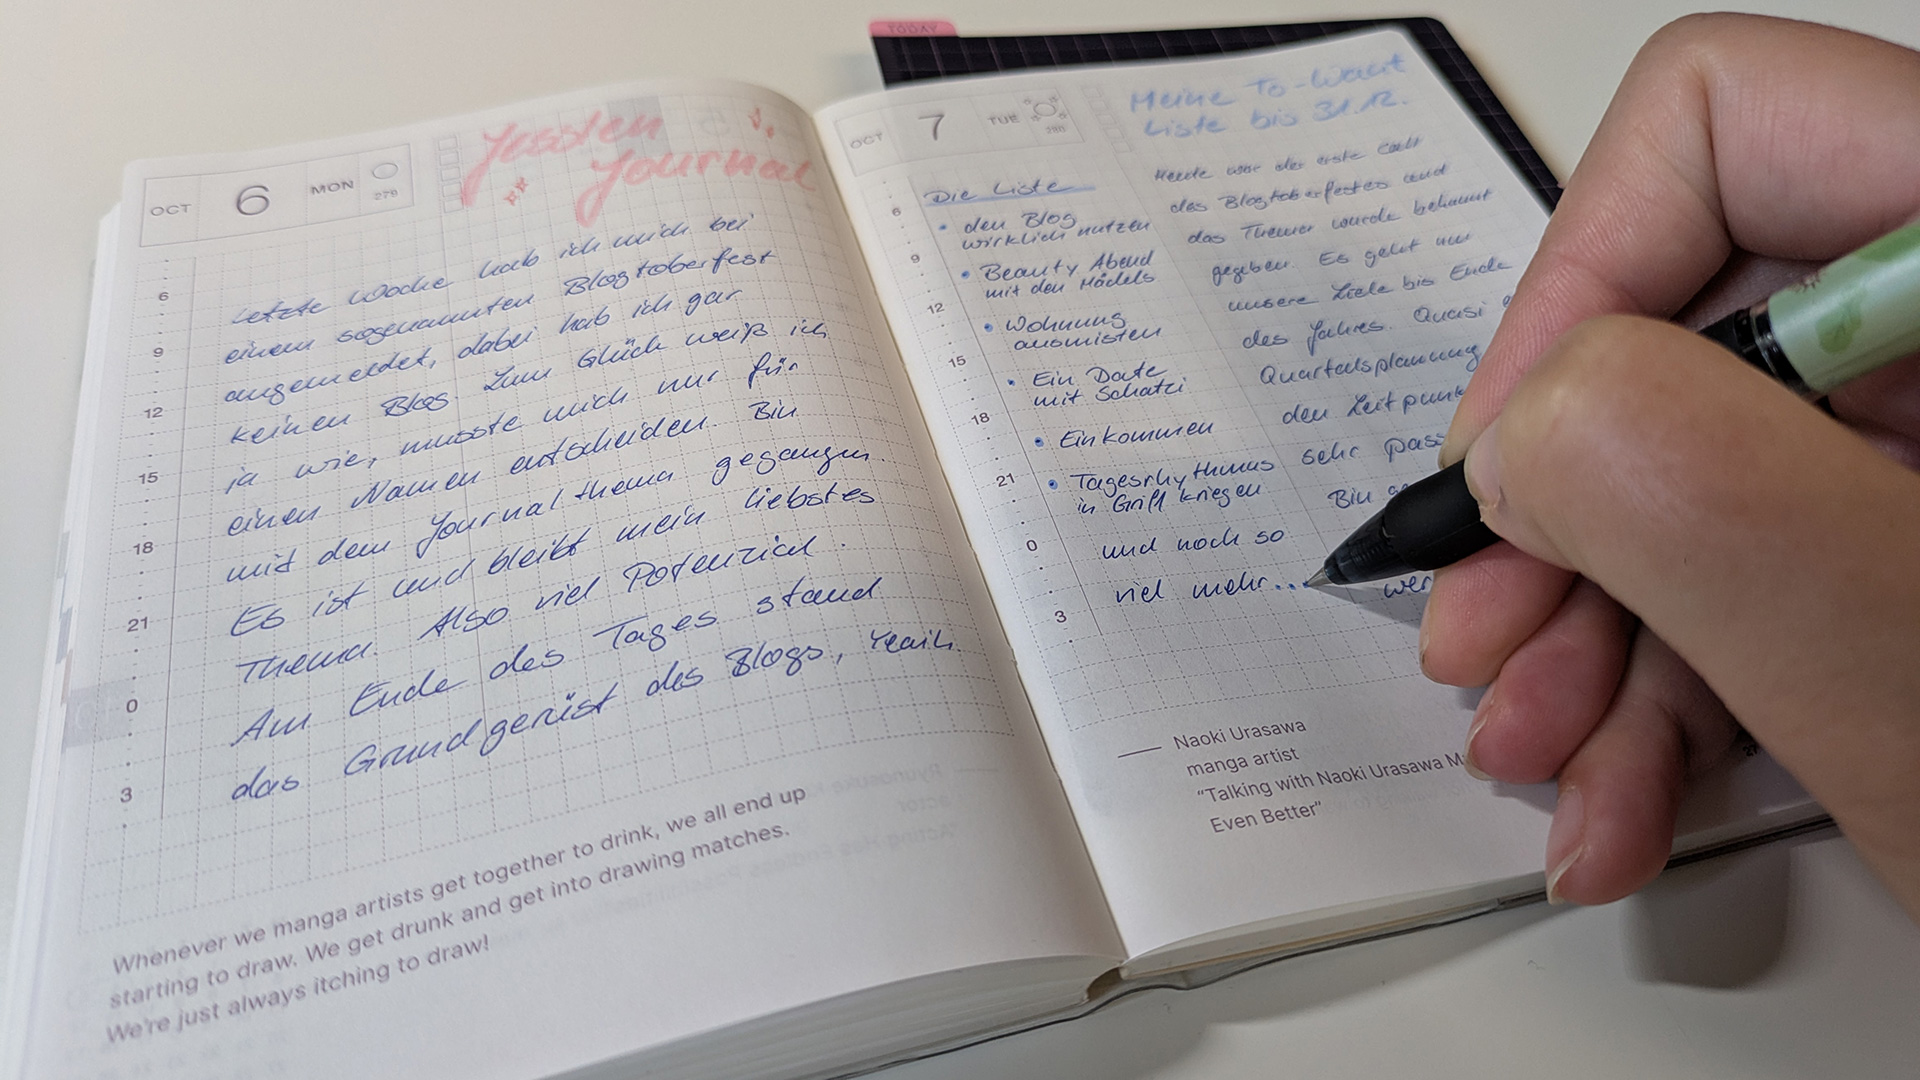 TODAY
OCT 6 MON
279
Jessten
Journal
6
9
12
15
18
21
0
3
Letzte Woche hab ich mich bei
einem sogenannten Blogtoberfest
angemeldet, dabei hab ich gar
keinen Blog. Zum Glück weiß ich
ja wie, musste mich nur für
einen Namen entscheiden. Bin
mit dem Journalthema gegangen.
Es ist und bleibt mein liebstes
Thema. Also viel Potenzial.
Am Ende des Tages stand
das Grundgerüst des Blogs, Yeah.
Whenever we manga artists get together to drink, we all end up
starting to draw. We get drunk and get into drawing matches.
We're just always itching to draw!
OCT 7 TUE
280
Meine To-Want
Liste bis 31.12.
6
9
12
15
18
21
0
3
Die Liste
• den Blog
wirklich nutzen
• Beauty Abend
mit den Mädels
• Wohnung
ausmisten
• Ein Date
mit Schatzi
• Einkommen
• Tagesrhythmus
in Griff kriegen
und noch so
viel mehr...
Heute war der erste Call
des Blogtoberfestes und
das Thema wurde bekannt
gegeben. Es geht um
unsere Ziele bis Ende
des Jahres. Quasi
Quartalsplanung
den Zeitpunk
sehr pass
Bin
wer
Naoki Urasawa
manga artist
"Talking with Naoki Urasawa M
Even Better"